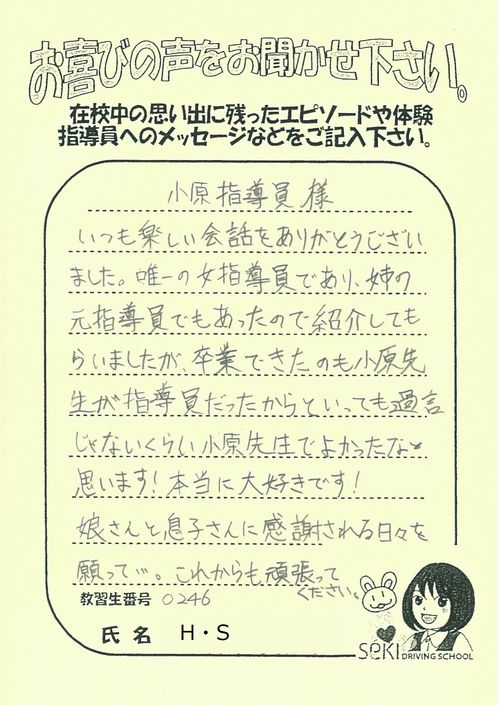 お喜びの声をお聞かせ下さい。
在校中の思い出に残ったエピソードや体験
指導員へのメッセージなどをご記入下さい。
小原指導員様
いつも楽しい会話をありがとうござい
ました。唯一の女指導員であり、姉の
元指導員でもあったので紹介しても
らいましたが、卒業できたのも小原先
生が指導員だったからといっても過言
じゃないくらい小原先生でよかったなと
思います!本当に大好きです!
娘さんと息子さんに感謝される日々を
願って…。これからも頑張って
ください。
教習生番号 0246
氏名 H・S
SEKI DRIVING SCHOOL